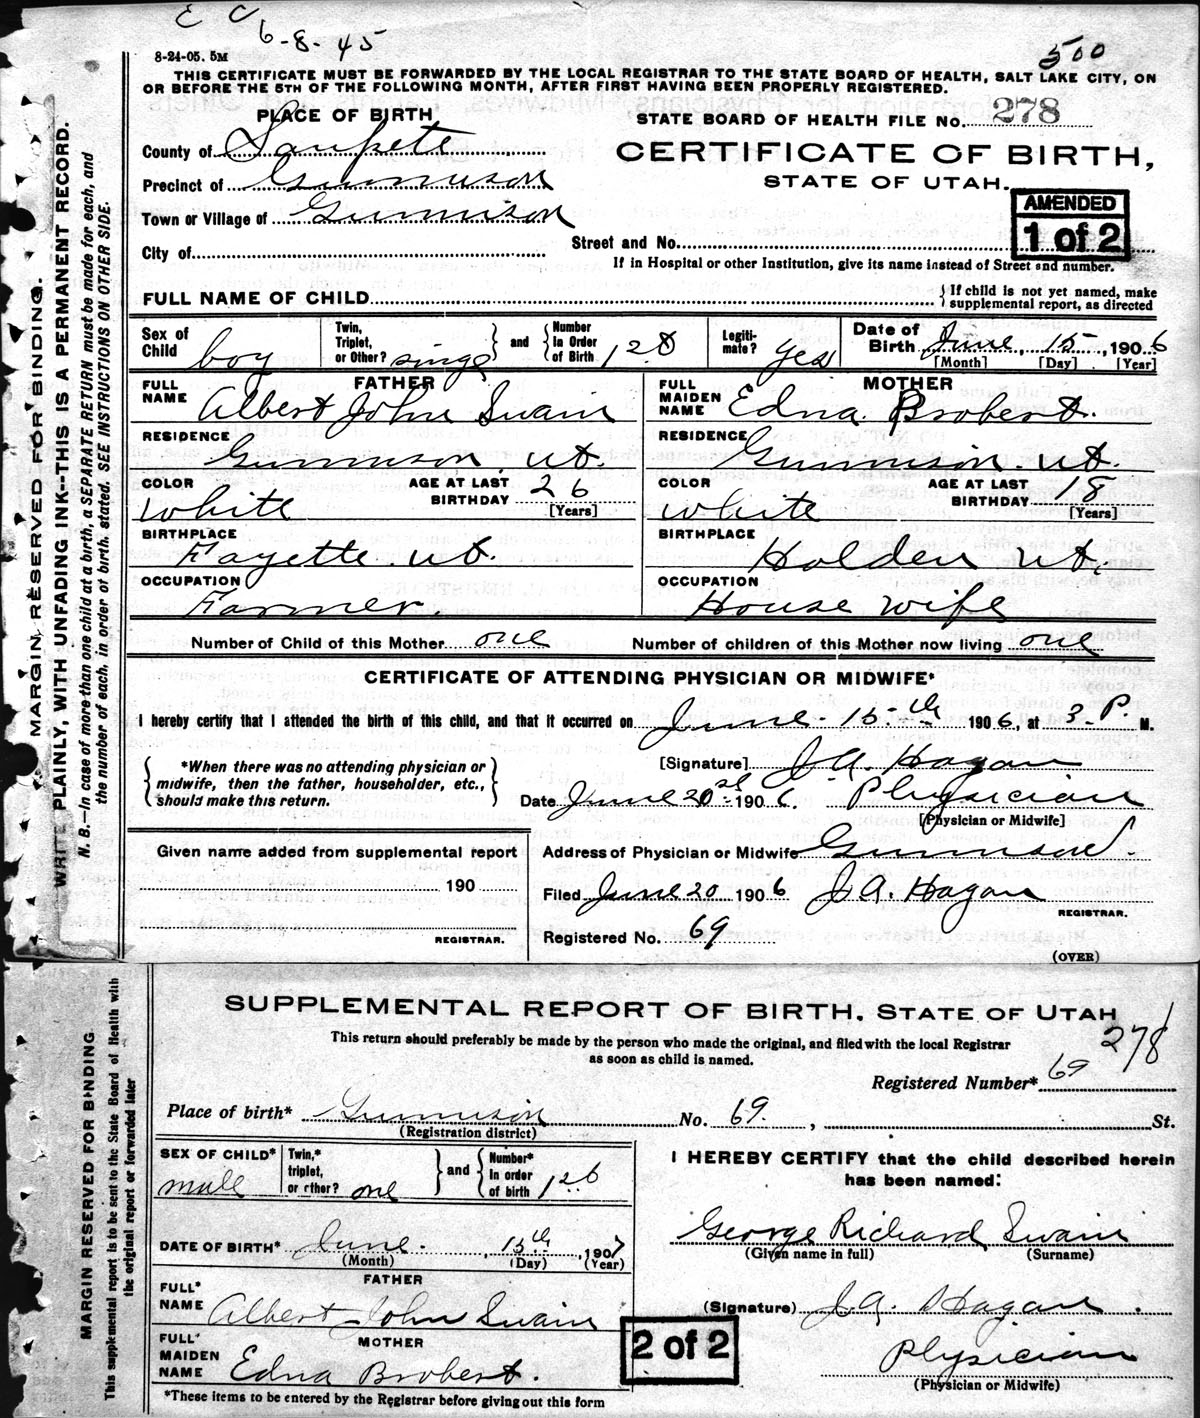 E C 6-8-45
8-24-05. 5M
500
THIS CERTIFICATE MUST BE FORWARDED BY THE LOCAL REGISTRAR TO THE STATE BOARD OF HEALTH, SALT LAKE CITY, ON
OR BEFORE THE 5TH OF THE FOLLOWING MONTH, AFTER FIRST HAVING BEEN PROPERLY REGISTERED.
PLACE OF BIRTH
STATE BOARD OF HEALTH FILE No. 278
County of Sanpete
CERTIFICATE OF BIRTH,
Precinct of Gunnison
STATE OF UTAH.
AMENDED
1 of 2
Town or Village of Gunnison
City of
Street and No.
If in Hospital or other Institution, give its name instead of Street and number.
FULL NAME OF CHILD
If child is not yet named, make
supplemental report, as directed
Sex of Child boy
Twin, Triplet, or Other? single
and
Number in Order of Birth 1st
Legiti-mate? yes
Date of Birth June, 15, 1906
[Month] [Day] [Year]
FATHER
FULL NAME Albert John Swain
MOTHER
FULL MAIDEN NAME Edna Brobert.
RESIDENCE Gunnison, ut.
RESIDENCE Gunnison. ut.
COLOR White
AGE AT LAST BIRTHDAY 26
[Years]
COLOR White
AGE AT LAST BIRTHDAY 18
[Years]
BIRTHPLACE Fayette ut.
BIRTHPLACE Holden ut.
OCCUPATION Farmer.
OCCUPATION House wife
Number of Child of this Mother one
Number of children of this Mother now living one
CERTIFICATE OF ATTENDING PHYSICIAN OR MIDWIFE*
I hereby certify that I attended the birth of this child, and that it occurred on June 15th 1906, at 3 P. M.
*When there was no attending physician or
midwife, then the father, householder, etc.,
should make this return.
[Signature] J. A. Hagan
Date June 20st 1906. Physician
[Physician or Midwife]
Given name added from supplemental report
190
REGISTRAR.
Address of Physician or Midwife Gunnison.
Filed June 20 1906 J. A. Hagan
REGISTRAR.
Registered No. 69
(OVER)
MARGIN RESERVED FOR BINDING.
WRITE PLAINLY, WITH UNFADING INK--THIS IS A PERMANENT RECORD.
N. B.—In case of more than one child at a birth, a SEPARATE RETURN must be made for each, and
the number of each, in order of birth, stated. SEE INSTRUCTIONS ON OTHER SIDE.
SUPPLEMENTAL REPORT OF BIRTH, STATE OF UTAH
This return should preferably be made by the person who made the original, and filed with the local Registrar
as soon as child is named.
278
Registered Number* 69
Place of birth* Gunnison No. 69. , St.
(Registration district)
SEX OF CHILD* male
Twin,* triplet, or other? one
and
Number* in order of birth 1st
I HEREBY CERTIFY that the child described herein
has been named:
George Richard Swain
(Given name in full) (Surname)
DATE OF BIRTH* June. , 15th , 1907
(Month) (Day) (Year)
FATHER
FULL* NAME Albert John Swain
(Signature) J. A. Hagan.
MOTHER
FULL* MAIDEN NAME Edna Brobert.
2 of 2
Physician
(Physician or Midwife)
*These items to be entered by the Registrar before giving out this form
MARGIN RESERVED FOR BINDING
This supplemental report is to be sent to the State Board of Health with
the original report or forwarded later